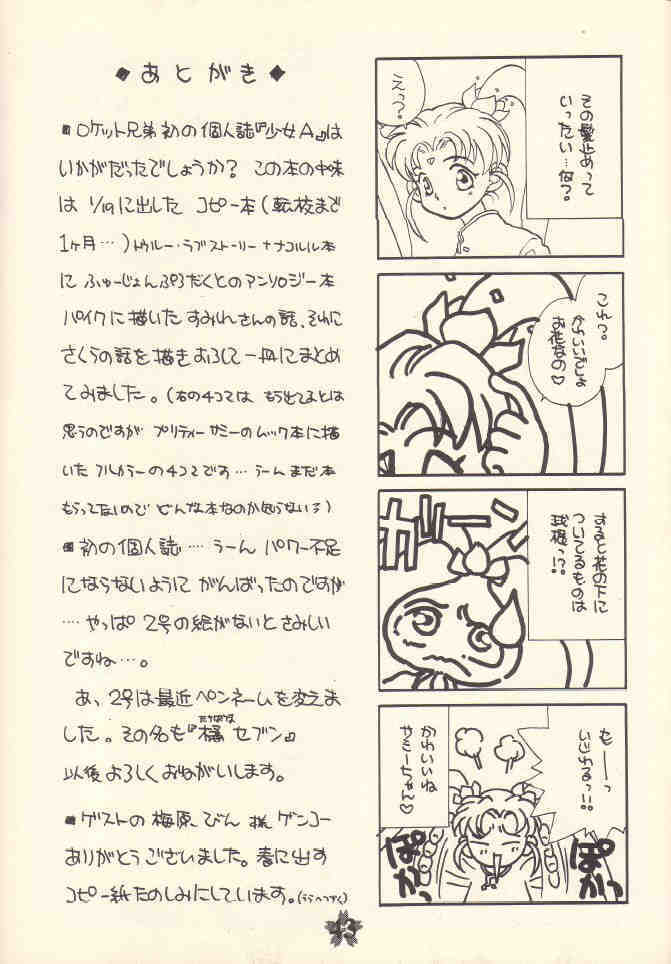 ◆あとがき◆
■ロケット兄弟初の個人誌『少女A』は
いかがだったでしょうか？この本の中味
は 1/19に出した コピー本(転校まで
1ヶ月…)トゥルー・ラブストーリー＋ナコルル本
に ふゅーじょんぷろだくとのアンソロジー本
パイクに描いたすみれさんの話、それに
さくらの話を描きおろして一冊にまとめ
てみました。(右の4コマは もう出てるとは
思うのですが プリティーサミーのムック本に描
いた フルカラーの4コマです…うーんまだ本
もらってないので どんな本なのか知らないう)
■初の個人誌…うーん パワー不足
にならないように がんばったのですが
…やっぱ2号の絵がないとさみしい
ですね…。
あ、2号は最近ペンネームを変えま
した。その名も『橘セブン』
たちばな
以後よろしくおねがいします。
■ゲストの梅原、びん 様 ゲンコー
ありがとうございました。春に出す
コピー紙たのしみにしています。(うらへつづく)
43
その髪止めって
いったい…何？。
えっ？。
これ？。
かわいいでしょ
お花なの♡
すると花の下に
ついてるものは
球根っ!?
ガーン
もーっ
いじわるっ!!
かわいいね
サミーちゃん♡
ぽかっ
ぽかっ